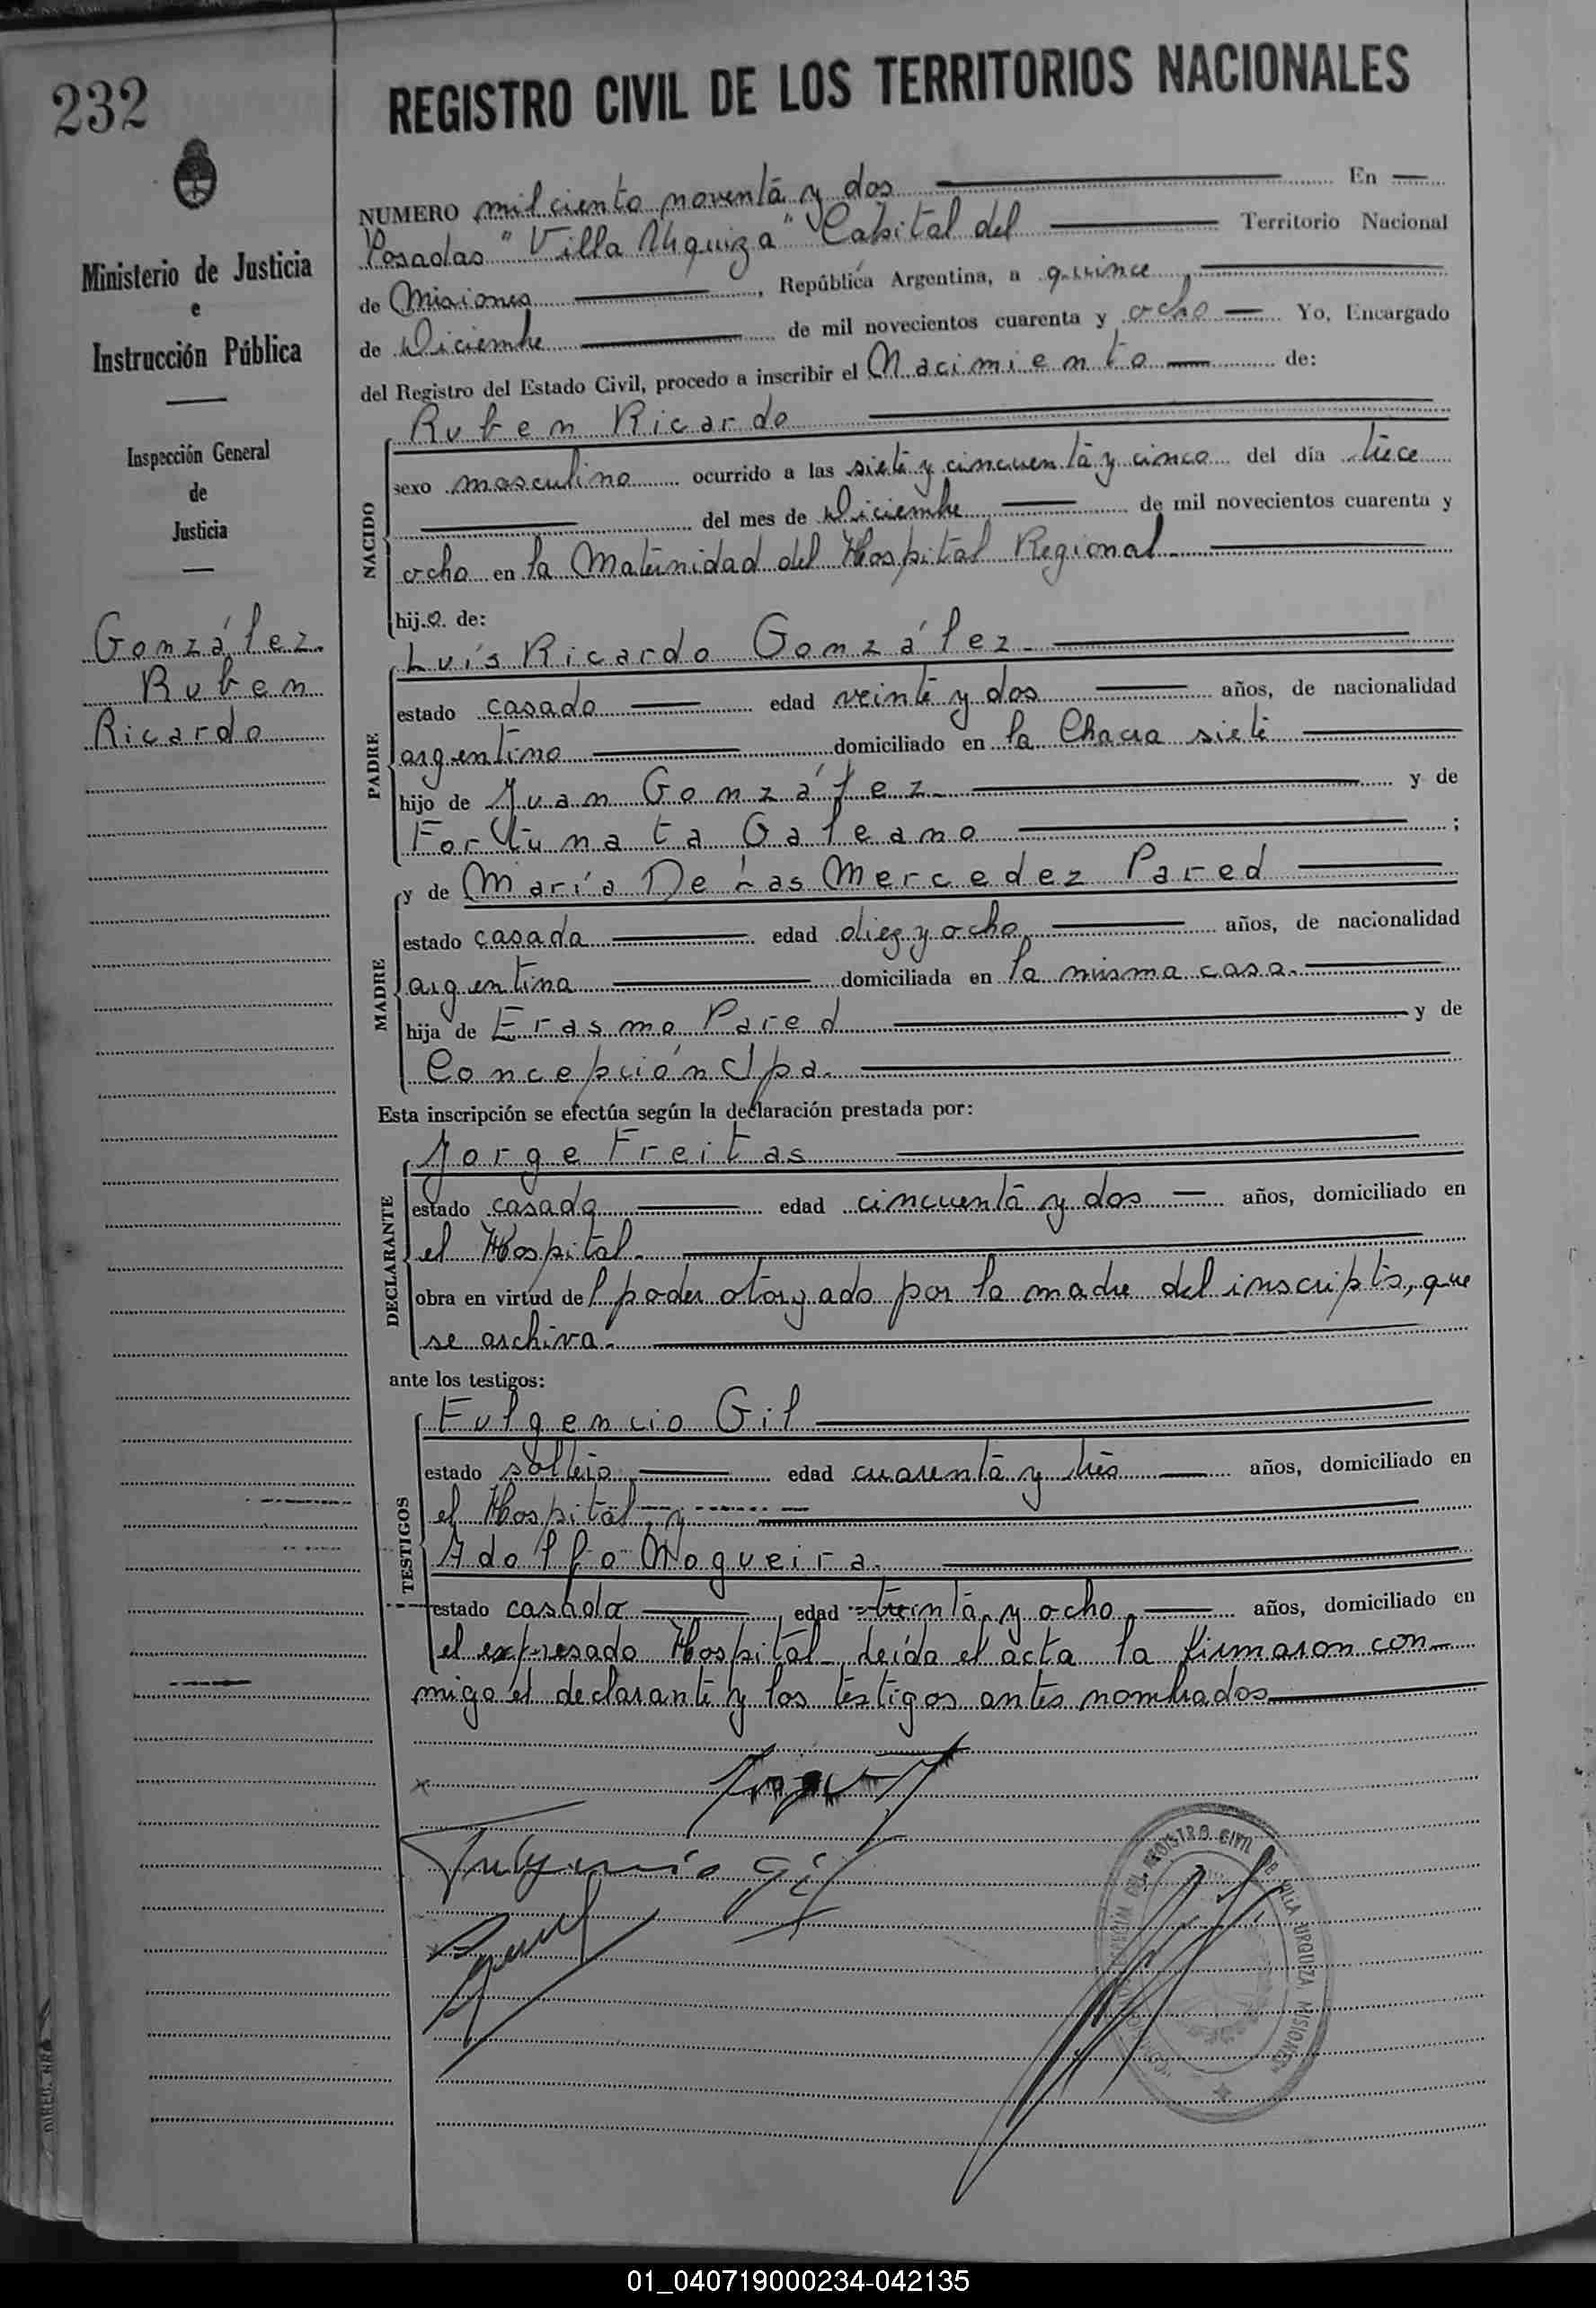 232
REGISTRO CIVIL DE LOS TERRITORIOS NACIONALES
Ministerio de Justicia
e
Instrucción Pública
Inspección General
de
Justicia
González.
Ruben
Ricardo
NUMERO mil ciento noventa y dos En
Posadas "Villa Urquiza" Capital del Territorio Nacional
de Misiones, República Argentina, a quince
de Diciembre de mil novecientos cuarenta y ocho Yo, Encargado
del Registro del Estado Civil, procedo a inscribir el Nacimiento de:
NACIDO
Ruben Ricardo
sexo masculino ocurrido a las siete y cincuenta y cinco del día trece
del mes de Diciembre de mil novecientos cuarenta y
ocho en la Maternidad del Hospital Regional
hijo de:
PADRE
Luís Ricardo González.
estado casado edad veinte y dos años, de nacionalidad
argentino domiciliado en la Chacra siete
hijo de Juan González. y de
Fortunata Galeano ;
MADRE
y de María De Las Mercedez Pared
estado casada edad diez y ocho años, de nacionalidad
argentina domiciliada en la misma casa.
hija de Erasmo Pared y de
Concepción
Esta inscripción se efectúa según la declaración prestada por:
DECLARANTE
Jorge Freitas
estado casado edad cincuenta y dos años, domiciliado en
el Hospital.
obra en virtud del poder otorgado por la madre del inscripto, que
se archiva.
ante los testigos:
TESTIGOS
Fulgencio Gil
estado soltero edad cuarenta y tres años, domiciliado en
el Hospital, y
Adolfo Nogueira.
estado casado edad treinta y ocho, años, domiciliado en
el expresado Hospital. Leída el acta la firmaron con-
migo el declarante y los testigos antes nombrados
Fulgencio Gil
REGISTRO CIVIL DE VILLA URQUIZA, MISIONES
01_040719000234-042135